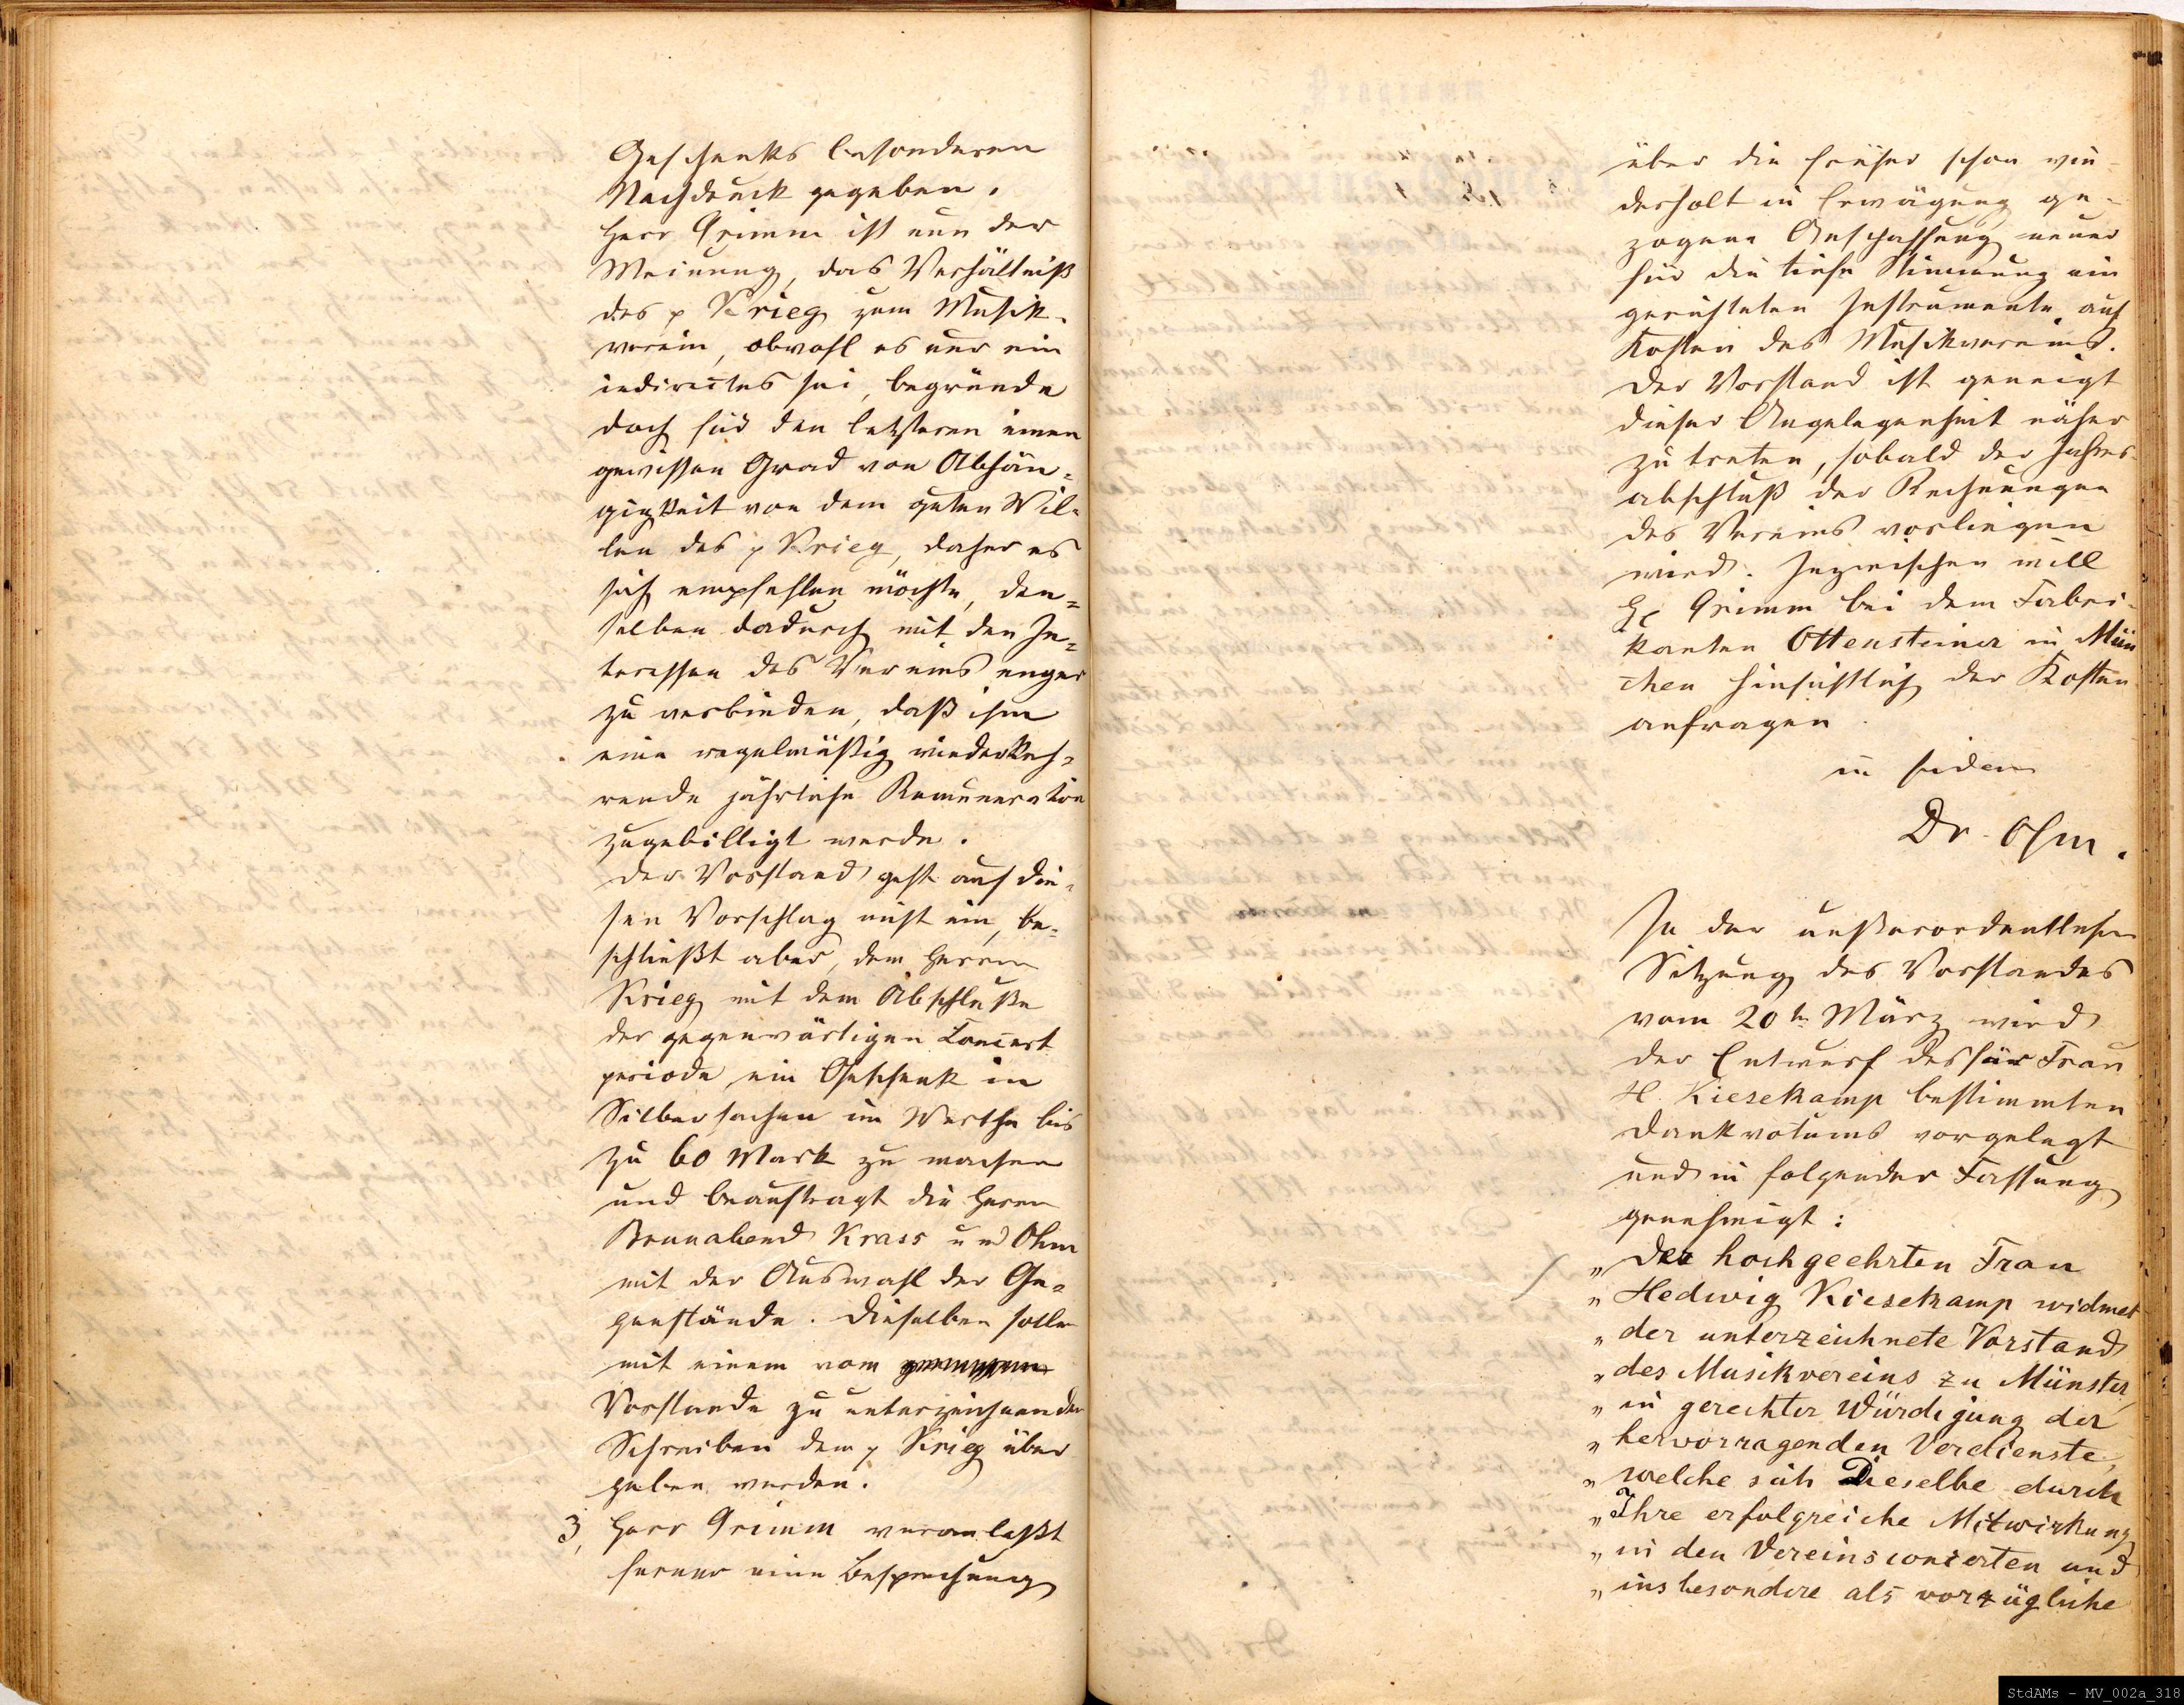 Geschenks besonderen
Nachdruck gegeben.
Herr Grimm ist nun der
Meinung, das Verhältniß
des p Krieg zum Musik-
verein, obwohl es nur ein
indirectes sei, begründe
doch für den letzteren einen
gewissen Grad von Abhän-
gigkeit von dem guten Wil-
len des p Krieg, daher es
sich empfehlen möchte, den-
selben dadurch mit den In-
teressen des Vereins enger
zu verbinden, daß ihm
eine regelmäßig wiederkeh-
rende jährliche Remuneration
zugebilligt werde.
Der Vorstand geht auf die-
sen Vorschlag nicht ein, be-
schließt aber, dem Herrn
Krieg mit dem Abschluße
der gegenwärtigen Concert
periode ein Geschenk in
Silbersachen im Werthe bis
zu 60 Mark zu machen
und beauftragt die Herrn
Bonnabend Krass und Ohm
mit der Auswahl der Ge-
genstände. Dieselben sollen
mit einem vom
Vorstande zu unterzeichnenden
Schreiben dem p Krieg über
geben werden.
3, Herr Grimm veranlaßt
ferner eine Besprechung
über die früher schon wie-
derholt in Erwägung ge-
zogene Anschaffung neuer
für die tiefe Stimmung ein
gerichteten Instrumente auf
Kosten des Musikvereins.
Der Vorstand ist geneigt
dieser Angelegenheit näher
zu treten, sobald der Jahres-
abschluß der Rechnungen
des Vereins vorliegen
wird. Inzwischen will
H. Grimm bei dem Fabri-
kanten Ottensteiner in Mün
chen hinsichtlich der Kosten
anfragen.
in fidem
Dr. Ohm.
In der außerordentlichen
Sitzung des Vorstandes
vom 20ten März wird
der Entwurf des für Frau
H. Kiesekamp bestimmten
Dankvotums vorgelegt
und in folgender Fassung
genehmigt:
„ Der hochgeehrten Frau
„ Hedwig Kiesekamp widmet
„ der unterzeichnete Vorstand
„ des Musikvereins zu Münster,
„ in gerechter Würdigung der
„ hervorragenden Verdienste,
„ welche sich Dieselbe durch
„ Ihre erfolgreiche Mitwirkung
„ in den Vereinsconcerten und
„ insbesondere als vorzügliche
StdAMs - MV_002a_318